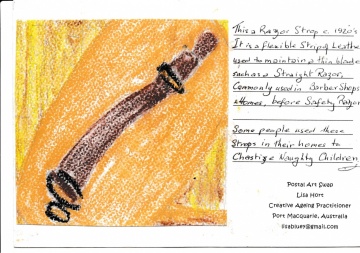 This is a Razor Strop c. 1920's
It is a flexible Strip of Leather
used to maintain a thin blade
such as a Straight Razor,
Commonly used in Barber Shops
& Homes, before Safety Razor
Some people used these
Strops in their homes to
Chastize Naughty Children
Postal Art Swap
Lisa Hort
Creative Ageing Practitioner
Port Macquarie, Australia
lisabluey@gmail.com